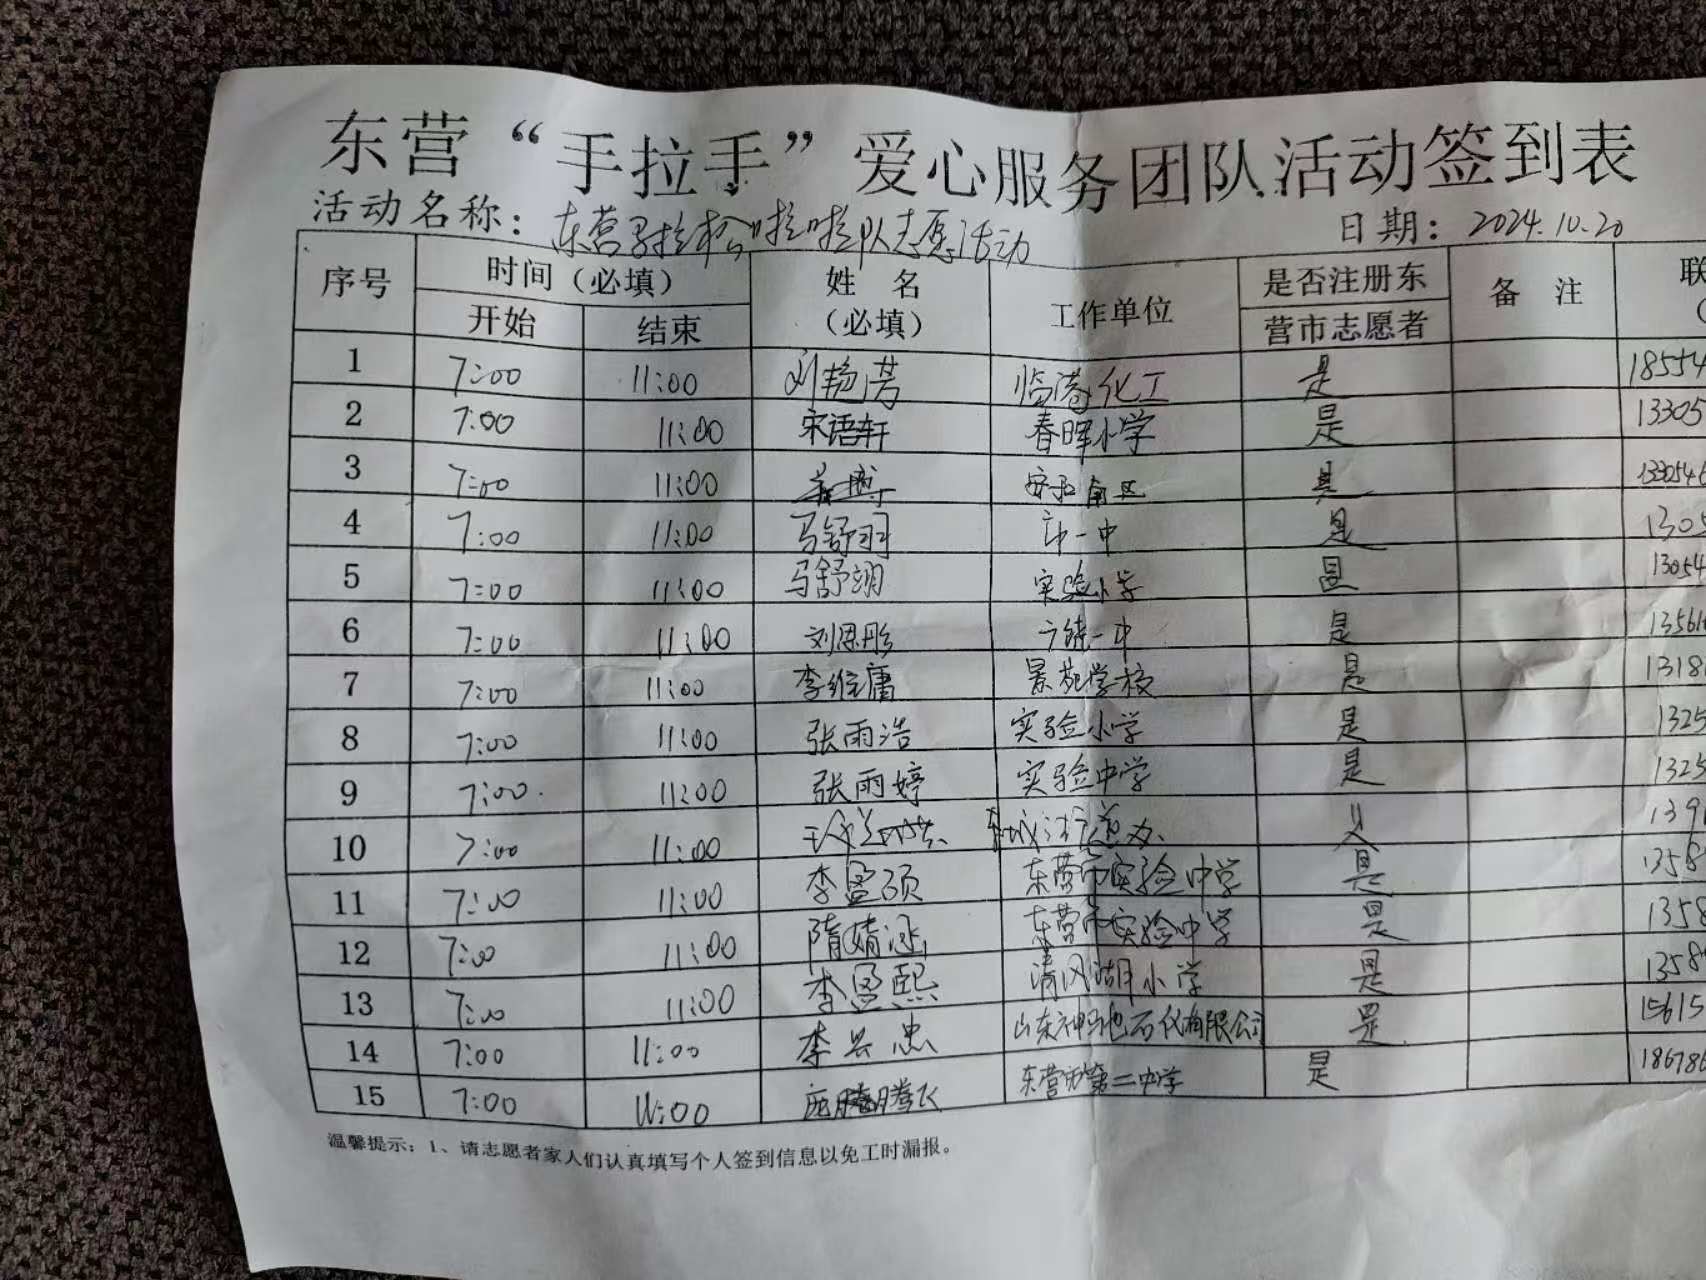 东营“手拉手”爱心服务团队活动签到表
活动名称：东营马拉松啦啦队志愿活动 日期：2024.10.20
序号 时间（必填） 姓名（必填） 工作单位 是否注册东营市志愿者 备注 联
开始 结束
1 7:00 11:00 刘艳芳 临港化工 是 18554
2 7:00 11:00 宋语轩 春晖小学 是 13305
3 7:00 11:00 安和南区 是 1330546
4 7:00 11:00 马舒羽 一中 是 1305
5 7:00 11:00 马舒翊 实验小学 是 13054
6 7:00 11:00 刘恩彤 广饶一中 是 13561
7 7:00 11:00 李维庸 景苑学校 是 1318
8 7:00 11:00 张雨浩 实验小学 是 1325
9 7:00 11:00 张雨婷 实验中学 是 1325
10 7:00 11:00 139
11 7:00 11:00 李盈颀 东营市实验中学 是 1358
12 7:00 11:00 隋婧涵 东营市实验中学 是 1358
13 7:00 11:00 李盈熙 清风湖小学 是 1358
14 7:00 11:00 李兴忠 是 15615
15 7:00 11:00 庞腾飞 东营市第二中学 是 186786
温馨提示：1、请志愿者家人们认真填写个人签到信息以免工时漏报。